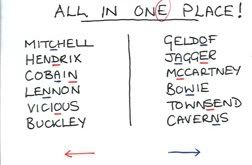 ALL IN ONE PLACE!
MITCHELL
HENDRIX
COBAIN
LENNON
VICIOUS
BUCKLEY
GELDOF
JAGGER
McCARTNEY
BOWIE
TOWNSEND
CAVERNS